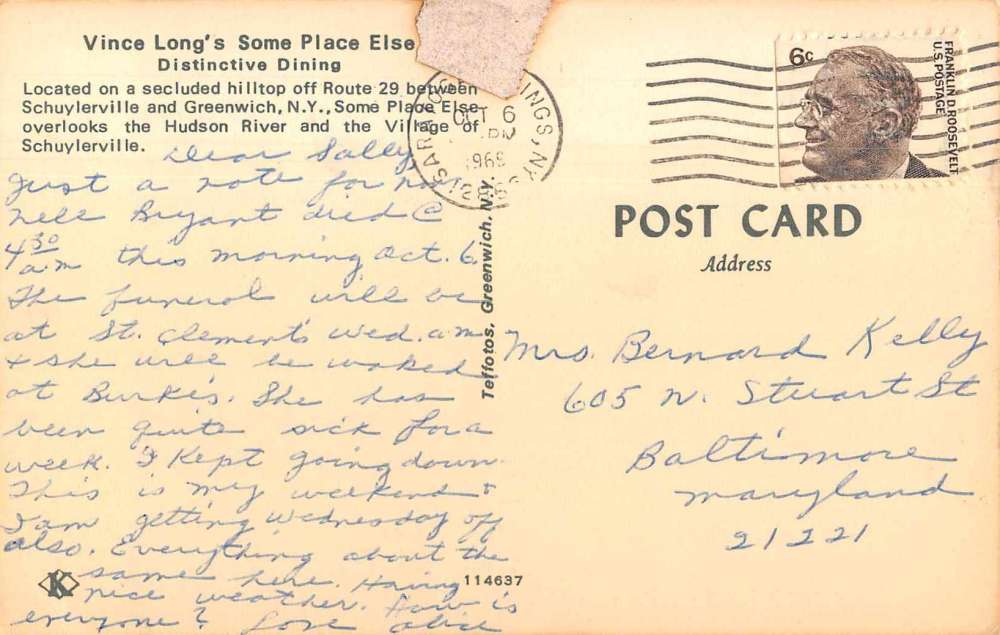 Vince Long's Some Place Else
Distinctive Dining
Located on a secluded hilltop off Route 29 between
Schuylerville and Greenwich, N.Y., Some Place Else
overlooks the Hudson River and the Village of
Schuylerville.
Dear Sally
Just a note for now
Nell Bryant died @
4 30 a.m this morning Oct. 6.
The funeral will be
at St. Clement's Wed. a.m
+ she will be waked
at Burke's. She has
been quite sick for a
week. I kept going down.
This is my weekend +
I am getting Wednesday off
also. Everything about the
same here. Having
nice weather. How is
everyone? Love Alice
K
114637
Teffotos, Greenwich, N.Y.
SARATOGA SPRINGS, N.Y.
OCT 6
PM
1969
6c
FRANKLIN D. ROOSEVELT
U.S. POSTAGE
POST CARD
Address
Mrs. Bernard Kelly
605 N. Stuart St
Baltimore
Maryland
21221